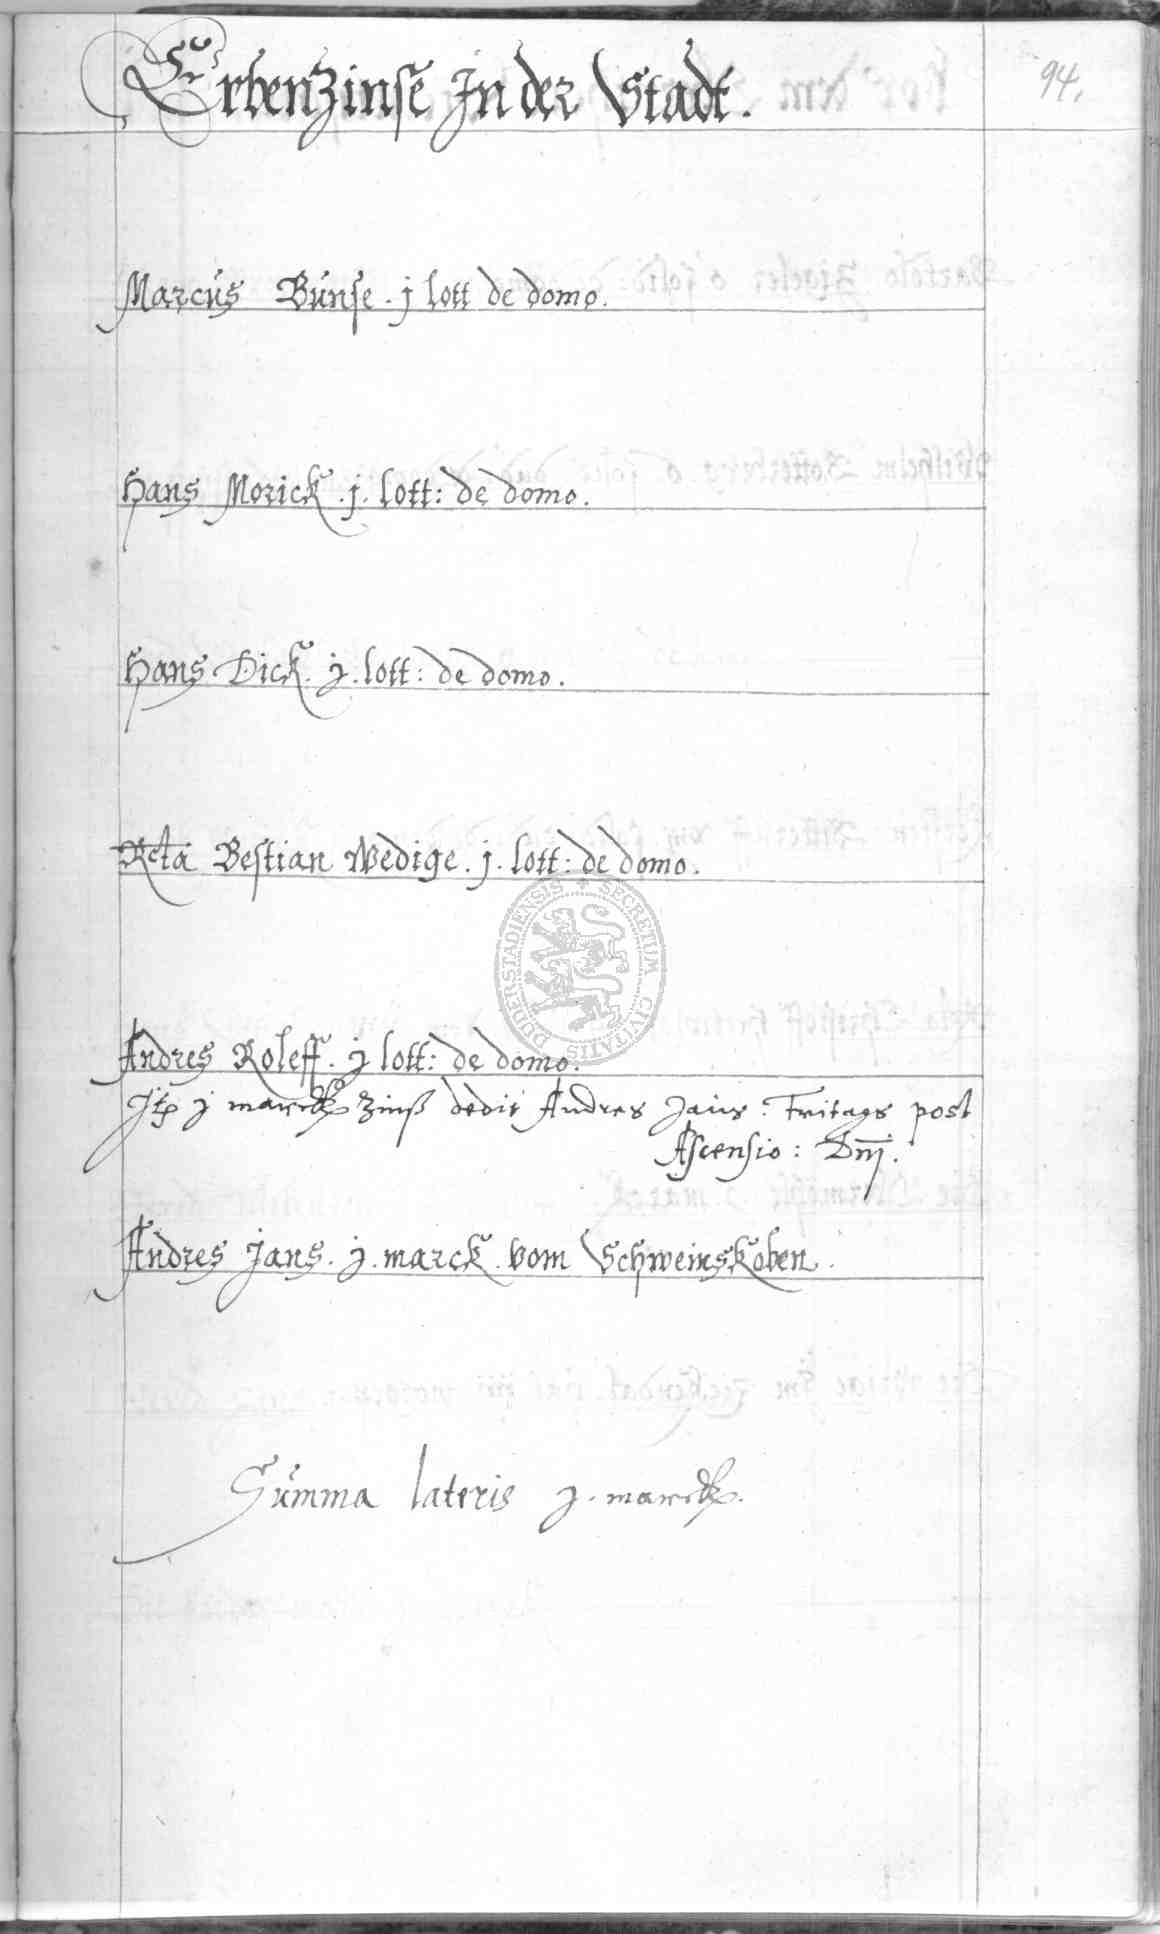 94.
ErbenZinse In der Stadt.
Marcus Bunse . j lott de domo.
Hans Morick . j . lott: de domo.
Hans Dick . j . lott: de domo.
Rcta Bestian Wedige . j . lott: de domo.
SECRETUM CIVITATIS DUDERSTADIENSIS
Andres Roleff . j lott: de domo.
j marck zinß dedit Andres Jans: Fritags post
Ascensio: Dnj.
Andres Jans . j . marck . vom Schweinskoben.
Summa lateris j . marck.